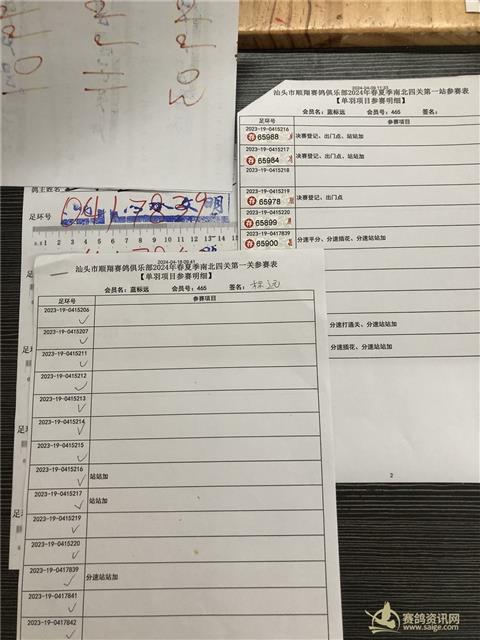 2024-04-09 11:23
汕头市顺翔赛鸽俱乐部2024年春夏季南北四关第一站参赛表
【单羽项目参赛明细】
会员名:蓝标远 会员号:465 签名:
足环号 参赛项目
2023-19-0415216
65988 决赛登记、出门点、站站加
2023-19-0415217
65984 决赛登记、出门点、站站加
2023-19-0415218
2023-19-0415219
65978 决赛登记、出门点
2023-19-0415220
65899
2023-19-0417839
65900 分速平分、分速插花、分速站站加
分速打通关、分速站站加
分速插花、分速站站加
2
鸽主姓名
足环号
2024-04-18 09:41
汕头市顺翔赛鸽俱乐部2024年春夏季南北四关第一关参赛表
【单羽项目参赛明细】
会员名:蓝标远 会员号:465 签名:标远
足环号 参赛项目
2023-19-0415206
2023-19-0415207
2023-19-0415211
2023-19-0415212
2023-19-0415213
2023-19-0415214
2023-19-0415215
2023-19-0415216 站站加
2023-19-0415217 站站加
2023-19-0415219
2023-19-0415220
2023-19-0417839 分速站站加
2023-19-0417841
2023-19-0417842
赛鸽资讯网
www.saige.com